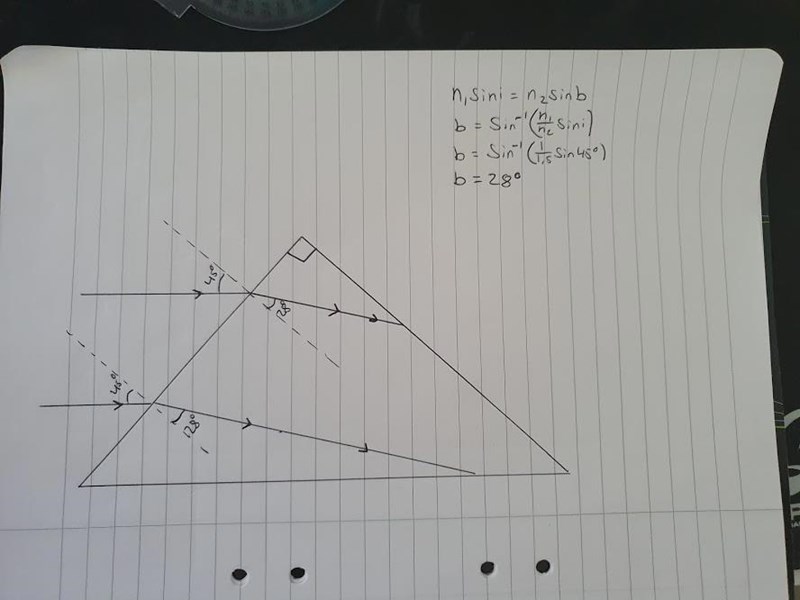 n₁sini = n₂sinb
b = Sin⁻¹(n₁/n₂ sini)
b = Sin⁻¹(1/1,5 Sin45°)
b = 28°
45°
28°
45°
28°